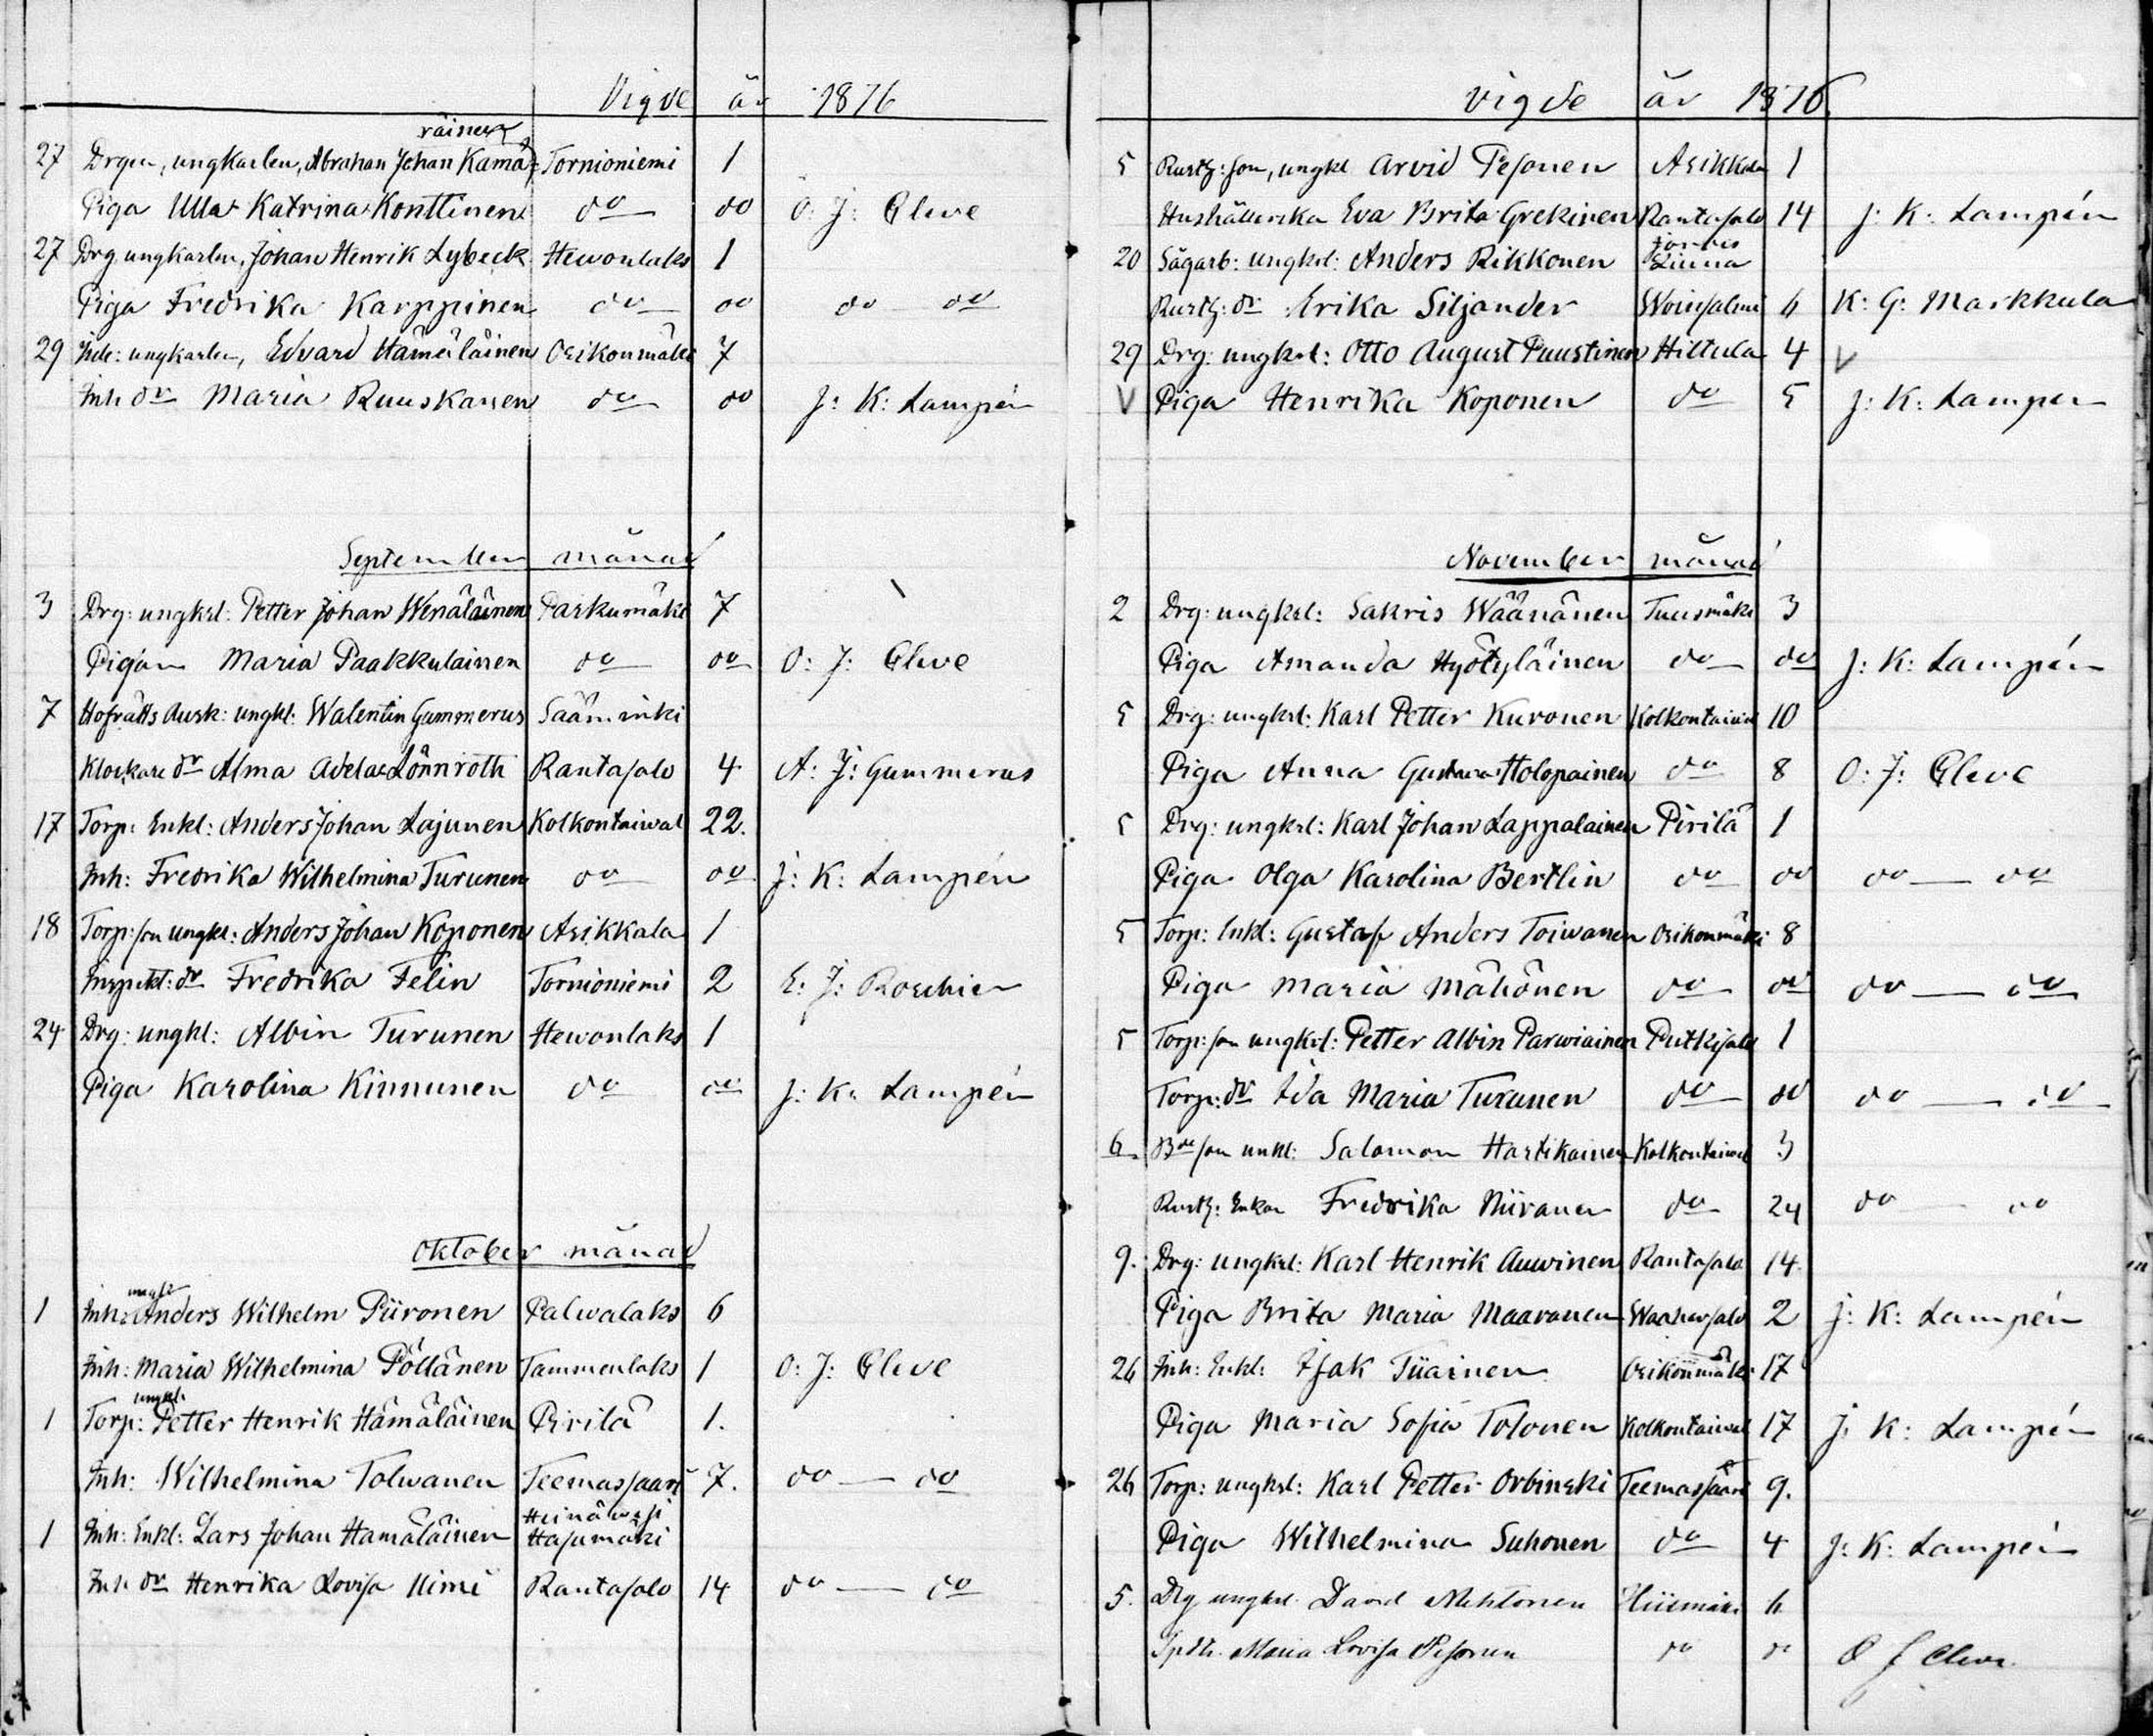 Vigde år 1876
räinen
27 Drgen, ungkarlen, Abraham Johan Kamä- Tornioniemi 1
Piga Ulla Katrina Konttinen do do O: J: Cleve
27 Drg ungkarlen, Johan Henrik Lybeck Hewonlaks 1
Piga Fredrika Karppinen do do do do
29 Inh: ungkarlen, Edvard Hämäläinen Osikonmäki 7
Inh dr Maria Ruuskanen do do J: K: Lampén
September månad
3 Drg: ungkrl: Petter Johan Wenäläinen Parkumäki 7
Pigan Maria Paakkulainen do do O: J: Cleve
7 Hofrätts Ausk: ungkl: Walentin Gummerus Sääminki
Klockare dr Alma Adela Lönnroth Rantasalo 4 A: J: Gummerus
17 Torp: Enkl: Anders Johan Lajunen Kolkontaiwal 22.
Inh: Fredrika Wilhelmina Turunen do do J: K: Lampén
18 Torp: son ungkl: Anders Johan Koponen Asikkala 1
Inspekt: dr Fredrika Felin Tornioniemi 2 E: J: Roschier
24 Drg: ungkl: Albin Turunen Hewonlaks 1
Piga Karolina Kinnunen do do J: K: Lampén
Oktober månad
ungkl
1 Inh: Anders Wilhelm Piironen Palwalaks 6
Inh: Maria Wilhelmina Pöllänen Tammenlaks 1 O: J: Cleve
ungkl.
1 Torp: Petter Henrik Hämäläinen Pirilä 1.
Inh: Wilhelmina Tolwanen Teemassaari 7. do do
Heinäwesi
1 Inh: Enkl: Lars Johan Hämäläinen Hasumäki
Inh dr Henrika Lovisa Uimi Rantasalo 14 do do
vigde år 1876
5 Rusth: son, ungkl Arvid Pesonen Asikkala 1
Hushållerska Eva Brita Grekinen Rantasalo 14 J: K: Lampén
Jorois
20 Sågarb: ungkrl: Anders Rikkonen Linna
Rusth: dr Erika Siljander Woinsalmi 6 K: G: Markkula
29 Drg: ungkrl: Otto August Puustinen Hiltula 4 V
V Piga Henrika Koponen do 5 J: K: Lampen
November månad
2 Drg: ungkrl: Sakris Wäänänen Tuusmäki 3
Piga Amanda Hyötyläinen do do J: K: Lampén
5 Drg: ungkrl: Karl Petter Kuronen Kolkontaiwal 10
Piga Anna Gustava Holopainen do 8 O: J: Cleve
5 Drg: ungkrl: Karl Johan Lappalainen Pirilä 1
Piga Olga Karolina Bertlin do do do do
5 Torp: Enkl: Gustaf Anders Toiwanen Osikonmäki 8
Piga Maria Mähönen do do do do
5 Torp: son ungkrl: Petter Albin Parwiainen Putkisalo 1
Torp: dr Ida Maria Turunen do do do do
6. Bde son unkl: Salomon Hartikainen Kolkontaiwal 3
Rusth: Enkan Fredrika Niiranen do 24 do do
9. Drg: ungkrl: Karl Henrik Auwinen Rantasalo 14
Piga Brita Maria Maaranen Waahersalo 2 J: K: Lampén
26 Inh: Enkl: Isak Tiainen Osikonmäki 17
Piga Maria Sofia Tolonen Kolkontaiwal 17 J: K: Lampén
26 Torp: ungkrl: Karl Petter Orbinski Teemassaari 9.
Piga Wilhelmina Suhonen do 4 J: K: Lampén
5. Drg ungkrl. David Mehtonen Hiismäki 6
Maria Lovisa Pesonen do do O J Cleve